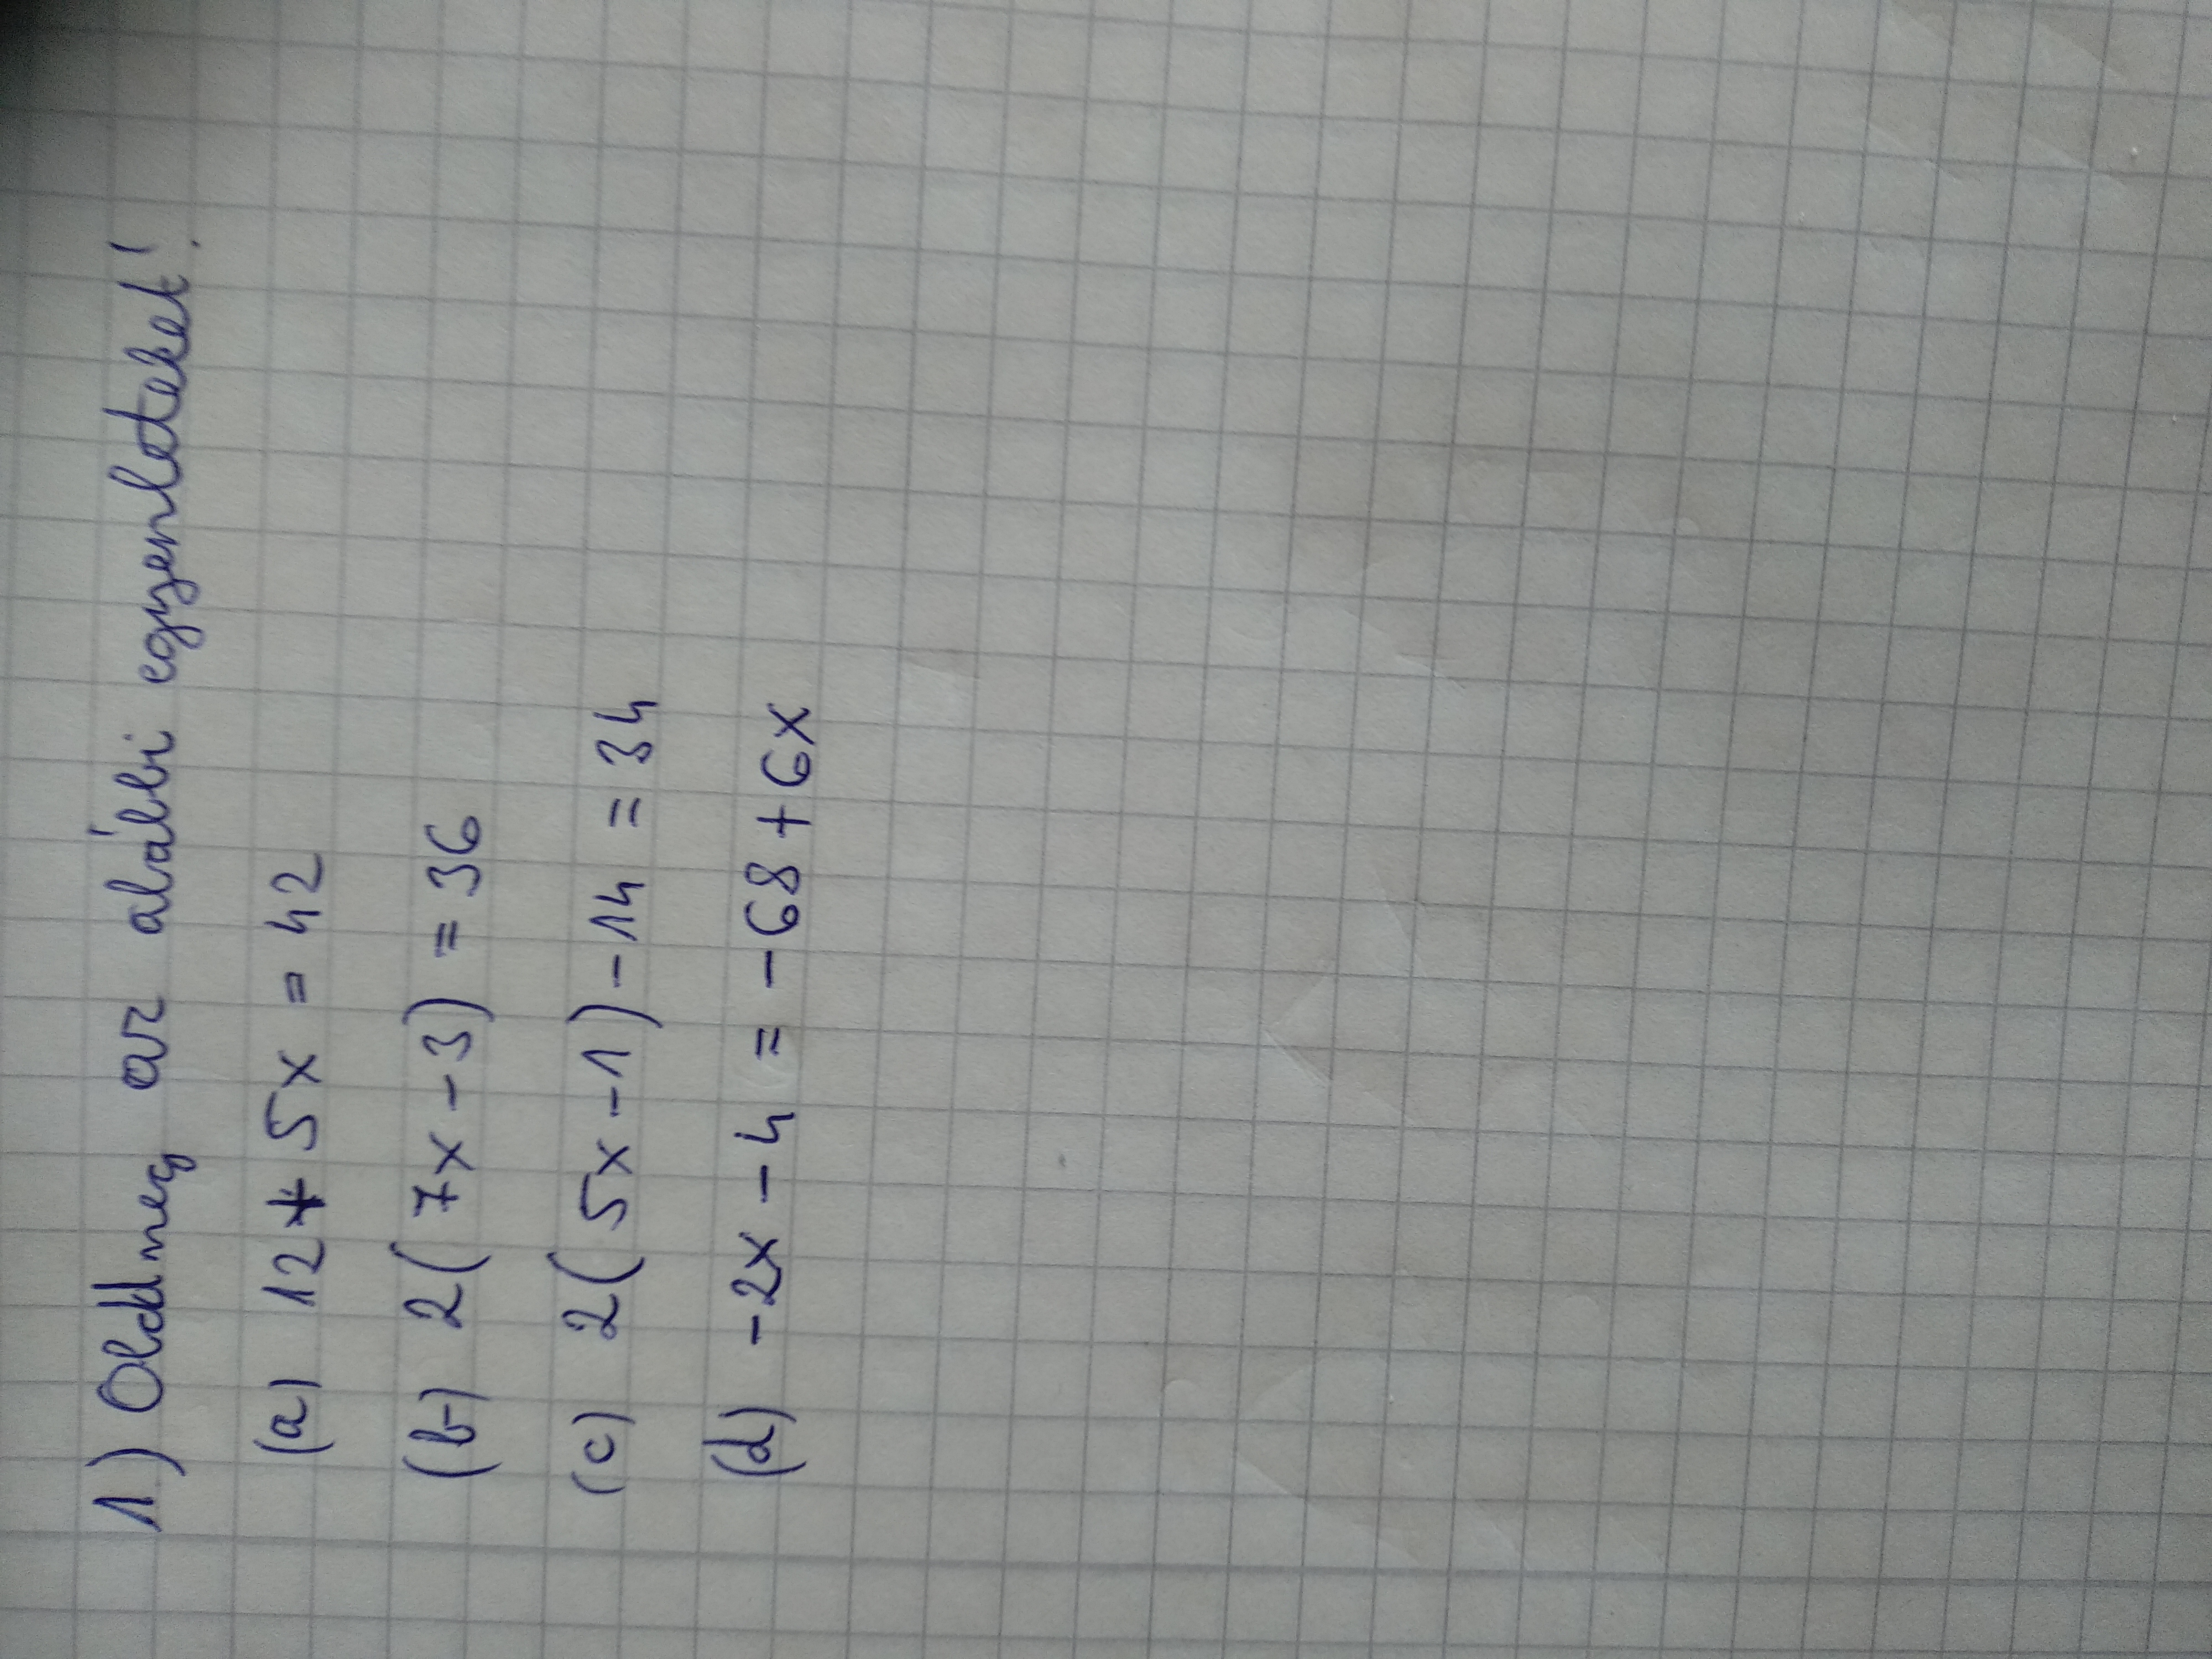 1.) Oldd meg az alábbi egyenleteket!
(a) 12 + 5x = 42
(b) 2(7x - 3) = 36
(c) 2(5x - 1) - 14 = 34
(d) -2x - 4 = -68 + 6x